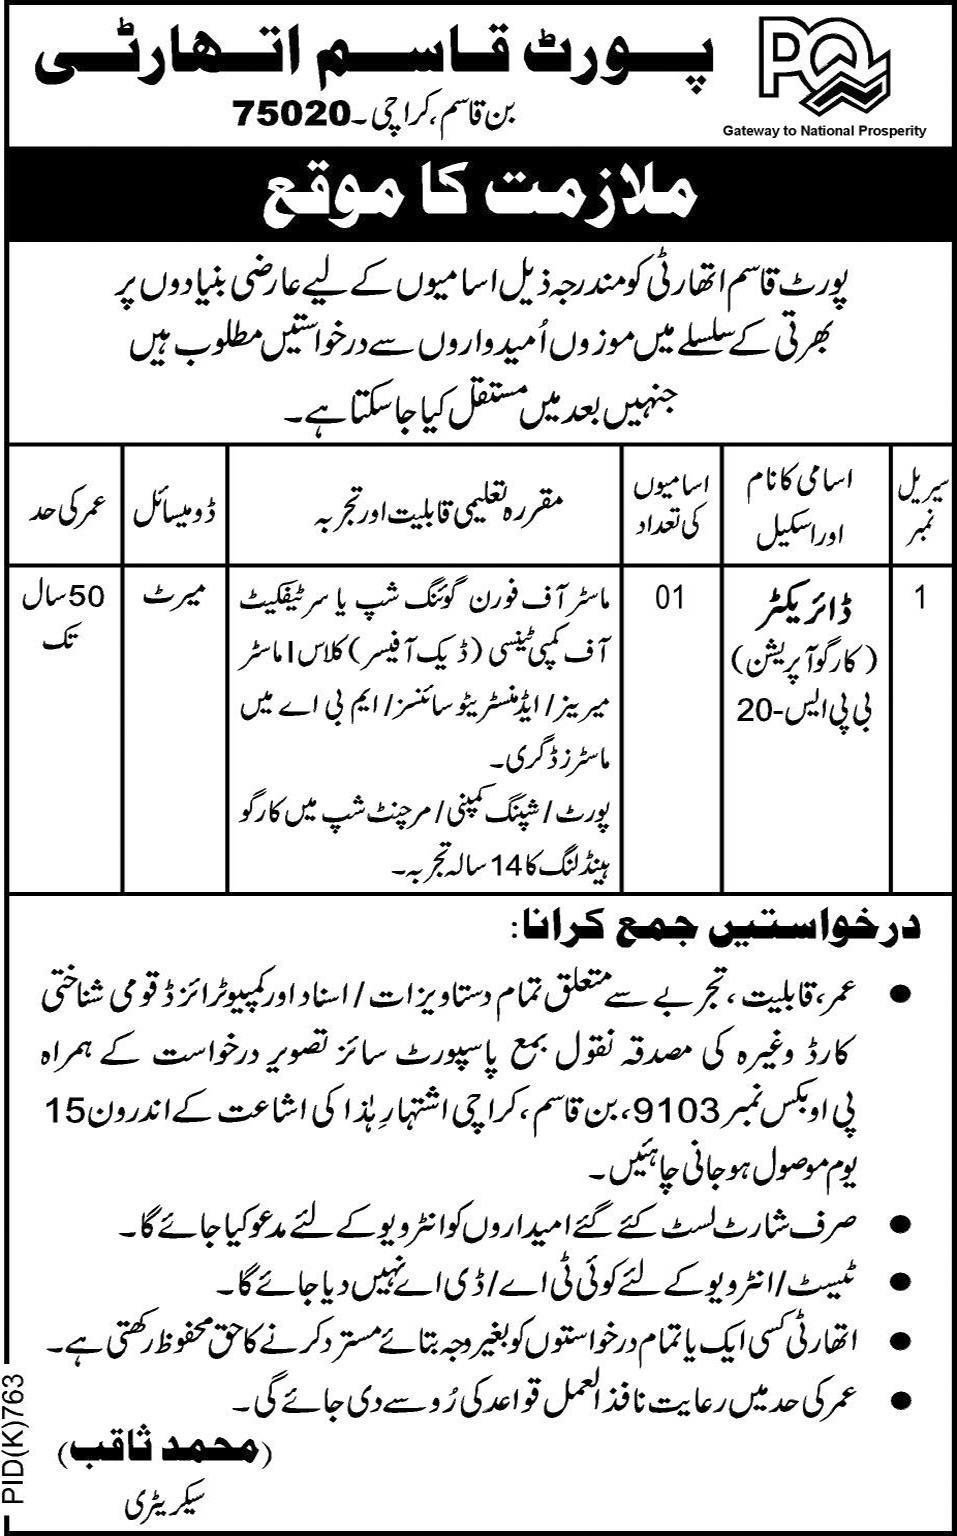 پورٹ قاسم اتھارٹی
بن قاسم، کراچی۔75020
PQA
Gateway to National Prosperity
ملازمت کا موقع
پورٹ قاسم اتھارٹی کو مندرجہ ذیل اسامیوں کے لیے عارضی بنیادوں پر
بھرتی کے سلسلے میں موزوں اُمیدواروں سے درخواستیں مطلوب ہیں
جنہیں بعد میں مستقل کیا جاسکتا ہے۔
سیریل نمبر
اسامی کا نام اور اسکیل
اسامیوں کی تعداد
مقررہ تعلیمی قابلیت اور تجربہ
ڈومیسائل
عمر کی حد
1
ڈائریکٹر
(کارگو آپریشن)
بی پی ایس-20
01
ماسٹر آف فورن گوئنگ شپ یا سرٹیفکیٹ
آف کمپی ٹینسی (ڈیک آفیسر) کلاس I ماسٹر
میریز/ ایڈمنسٹریٹو سائنسز/ ایم بی اے میں
ماسٹرز ڈگری۔
پورٹ/ شپنگ کمپنی/ مرچنٹ شپ میں کارگو
ہینڈلنگ کا 14 سالہ تجربہ۔
میرٹ
50 سال
تک
درخواستیں جمع کرانا:
● عمر، قابلیت، تجربے سے متعلق تمام دستاویزات/ اسناد اور کمپیوٹرائزڈ قومی شناختی
کارڈ وغیرہ کی مصدقہ نقول بمع پاسپورٹ سائز تصویر درخواست کے ہمراہ
پی او بکس نمبر 9103، بن قاسم، کراچی اشتہارِ ہٰذا کی اشاعت کے اندرون 15
یوم موصول ہوجانی چاہئیں۔
● صرف شارٹ لسٹ کئے گئے امیداروں کو انٹرویو کے لئے مدعو کیا جائے گا۔
● ٹیسٹ/ انٹرویو کے لئے کوئی ٹی اے/ ڈی اے نہیں دیا جائے گا۔
● اتھارٹی کسی ایک یا تمام درخواستوں کو بغیر وجہ بتائے مسترد کرنے کا حق محفوظ رکھتی ہے۔
● عمر کی حد میں رعایت نافذ العمل قواعد کی رُو سے دی جائے گی۔
(محمد ثاقب)
سیکریٹری
PID(K)763